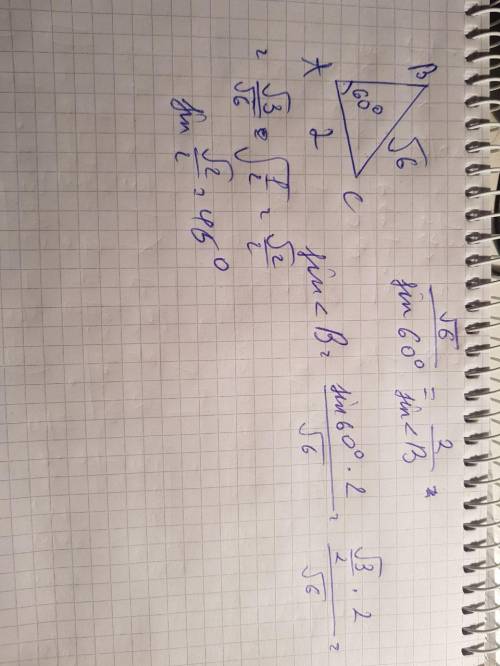 B
√6
60°
A
2
C
√6 / sin 60° = 2 / sin<B =
sin<B = sin60° · 2 / √6 = √3/2 · 2 / √6 =
= √3/√6 = √1/2 = √2/2
sin √2/2 = 45°